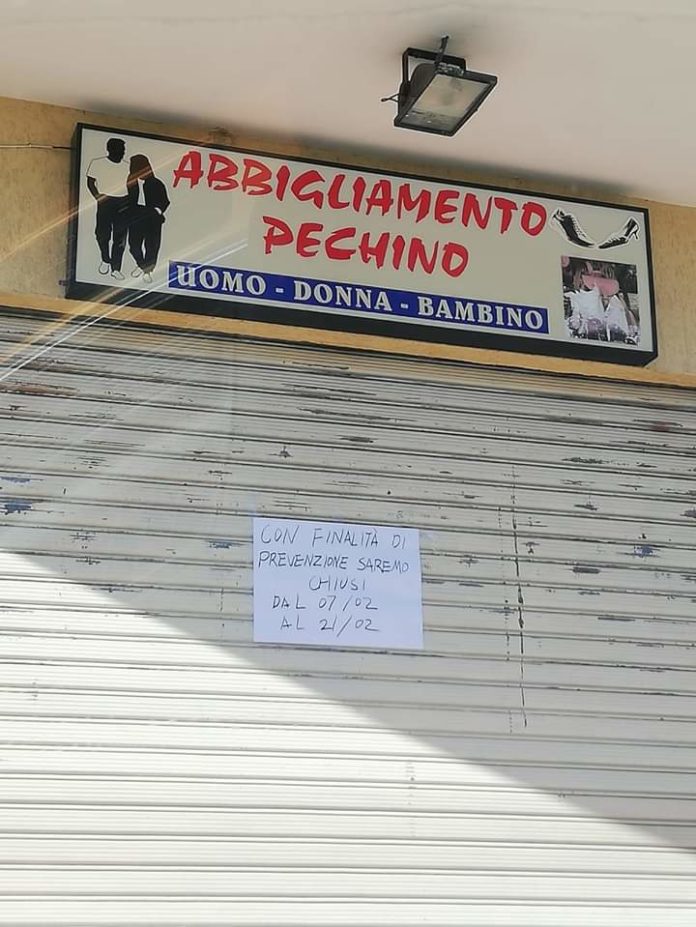 ABBIGLIAMENTO
PECHINO
UOMO - DONNA - BAMBINO
CON FINALITÀ DI
PREVENZIONE SAREMO
CHIUSI
DAL 07/02
AL 21/02